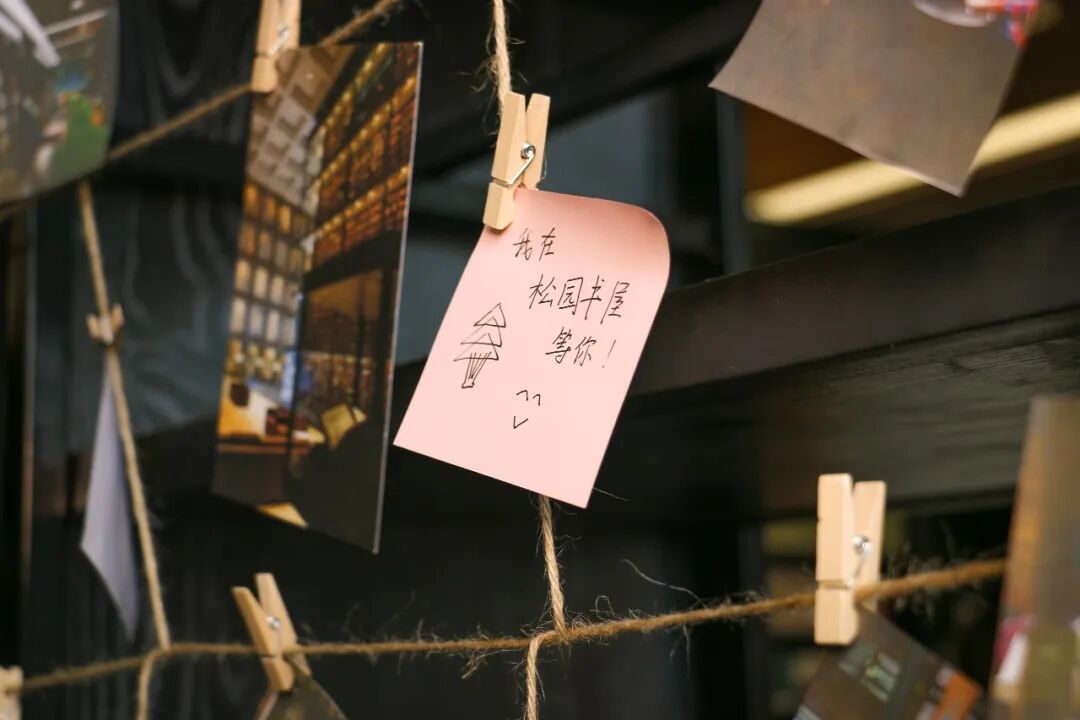 我在
松园书屋
等你！